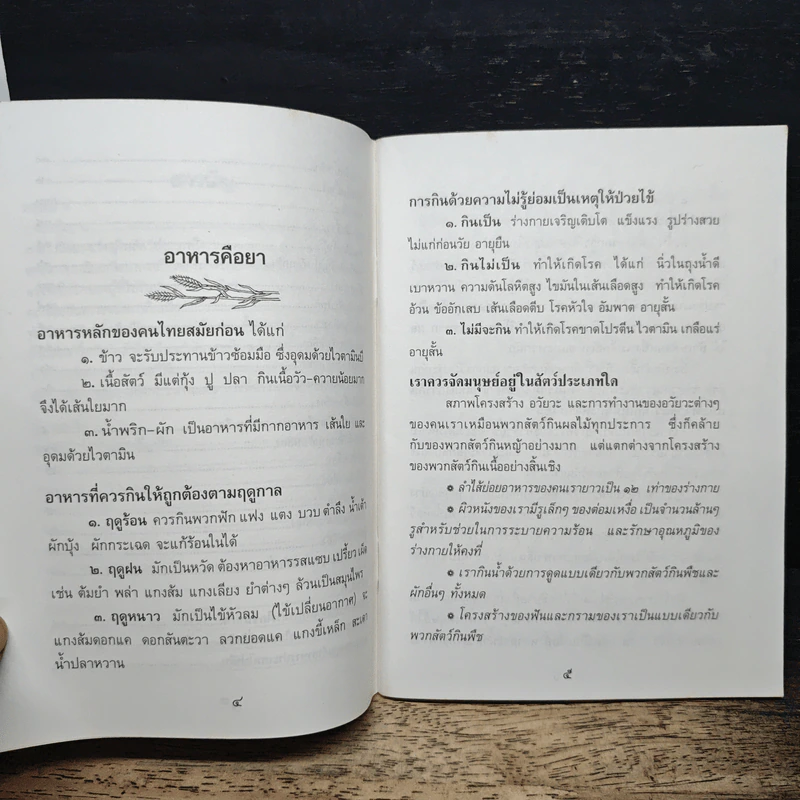 อาหารคือยา
อาหารหลักของคนไทยสมัยก่อน ได้แก่
๑. ข้าว จะรับประทานข้าวซ้อมมือ ซึ่งอุดมด้วยไวตามินบี
๒. เนื้อสัตว์ มีแต่กุ้ง ปู ปลา กินเนื้อวัว-ควายน้อยมาก
จึงได้เส้นใยมาก
๓. น้ำพริก-ผัก เป็นอาหารที่มีกากอาหาร เส้นใย และ
อุดมด้วยไวตามิน
อาหารที่ควรกินให้ถูกต้องตามฤดูกาล
๑. ฤดูร้อน ควรกินพวกฟัก แฟง แตง บวบ ตำลึง น้ำเต้า
ผักบุ้ง ผักกระเฉด จะแก้ร้อนในได้
๒. ฤดูฝน มักเป็นหวัด ต้องหาอาหารรสแซบ เปรี้ยว เผ็ด
เช่น ต้มยำ พล่า แกงส้ม แกงเลียง ยำต่างๆ ล้วนเป็นสมุนไพร
๓. ฤดูหนาว มักเป็นไข้หัวลม (ไข้เปลี่ยนอากาศ)
แกงส้มดอกแค ดอกสันตะวา ลวกยอดแค แกงขี้เหล็ก
น้ำปลาหวาน
๔
การกินด้วยความไม่รู้ย่อมเป็นเหตุให้ป่วยไข้
๑. กินเป็น ร่างกายเจริญเติบโต แข็งแรง รูปร่างสวย
ไม่แก่ก่อนวัย อายุยืน
๒. กินไม่เป็น ทำให้เกิดโรค ได้แก่ นิ่วในถุงน้ำดี
เบาหวาน ความดันโลหิตสูง ไขมันในเส้นเลือดสูง ทำให้เกิดโรค
อ้วน ข้ออักเสบ เส้นเลือดตีบ โรคหัวใจ อัมพาต อายุสั้น
๓. ไม่มีจะกิน ทำให้เกิดโรคขาดโปรตีน ไวตามิน เกลือแร่
อายุสั้น
เราควรจัดมนุษย์อยู่ในสัตว์ประเภทใด
สภาพโครงสร้าง อวัยวะ และการทำงานของอวัยวะต่างๆ
ของคนเราเหมือนพวกสัตว์กินผลไม้ทุกประการ ซึ่งก็คล้าย
กับของพวกสัตว์กินหญ้าอย่างมาก แต่แตกต่างจากโครงสร้าง
ของพวกสัตว์กินเนื้ออย่างสิ้นเชิง
ลำไส้ย่อยอาหารของคนเรายาวเป็น ๑๒ เท่าของร่างกาย
ผิวหนังของเรามีรูเล็กๆ ของต่อมเหงื่อ เป็นจำนวนล้านๆ
รูสำหรับช่วยในการระบายความร้อน และรักษาอุณหภูมิของ
ร่างกายให้คงที่
เรากินน้ำด้วยการดูดแบบเดียวกับพวกสัตว์กินพืชและ
ผักอื่นๆ ทั้งหมด
โครงสร้างของฟันและกรามของเราเป็นแบบเดียวกับ
พวกสัตว์กินพืช
๕